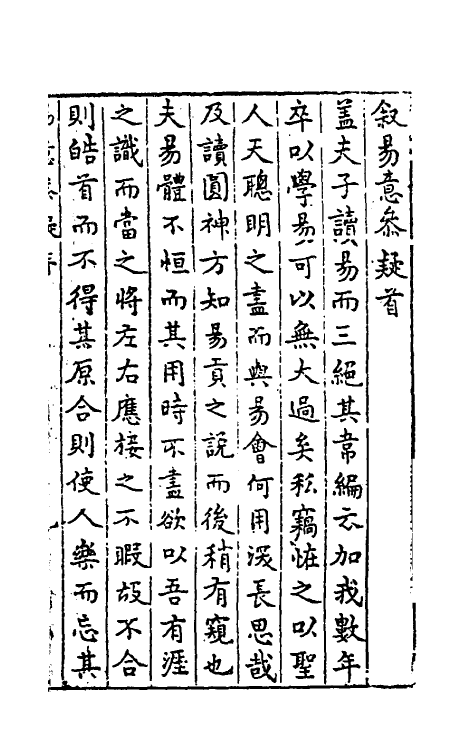 叙易意參疑首
盖夫子讀易而三絕其韋編云加我數年
卒以學易可以無大過矣私竊恠之以聖
人天聰明之盡而與易會何用深長思哉
及讀圓神方知易貢之說而後稍有窺也
夫易體不恒而其用時不盡欲以吾有涯
之識而當之將左右應接之不暇故不合
則皓首而不得其原合則使人樂而忘其